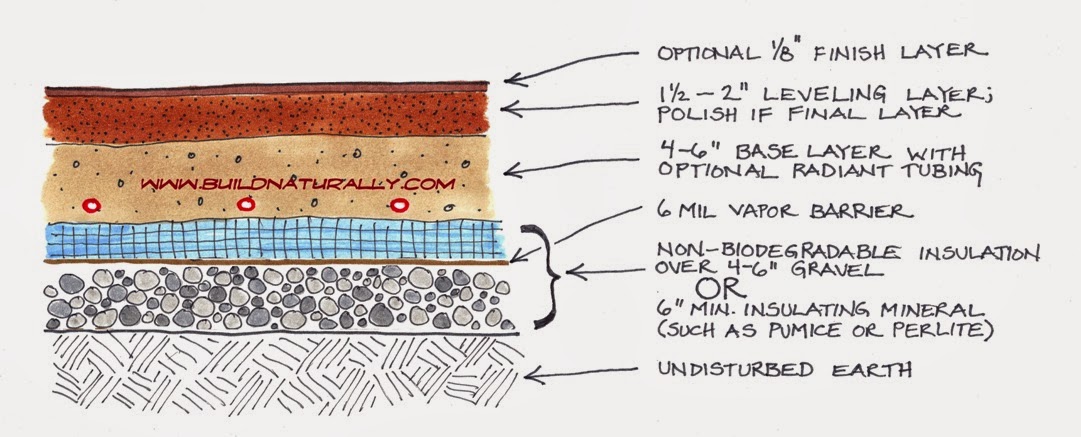 OPTIONAL 1/8" FINISH LAYER
1½ - 2" LEVELING LAYER;
POLISH IF FINAL LAYER
4-6" BASE LAYER WITH
OPTIONAL RADIANT TUBING
WWW.BUILDNATURALLY.COM
6 MIL VAPOR BARRIER
NON-BIODEGRADABLE INSULATION
OVER 4-6" GRAVEL
OR
6" MIN. INSULATING MINERAL
(SUCH AS PUMICE OR PERLITE)
UNDISTURBED EARTH